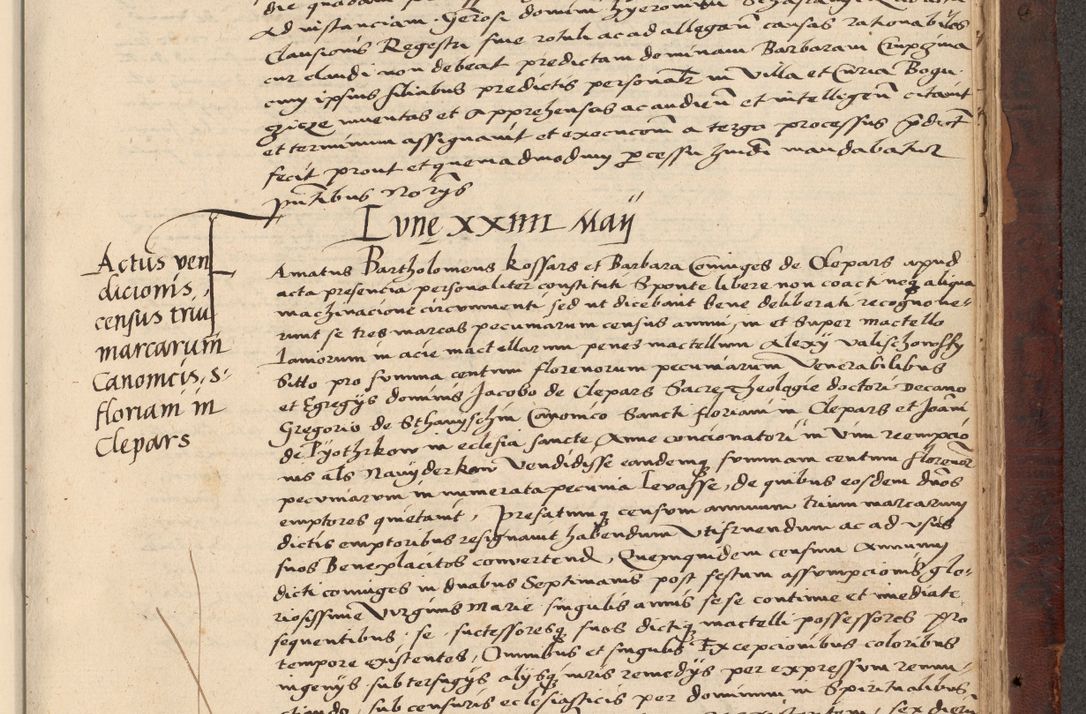 ad instanciam Generosi domini Hyeronimi
Clausionis Regestri sive rotuli ac ad allegan causas rationabiles
cur claudi non debeat predictam dominam Barbaram Crupczina
cum ipsius filiabus predictis personalr in villa et Curia Bogu
czicze inventas et apprehensas ac audien et intelligen citavit
et terminum assignavit et execucom a tergo processus pdict
fecit prout et quemadmodum processu mandabatur
pntibus Norys
Lunę XXIIII Maij
Actus ven
dicionis,
census triu
marcarum
Canonicis, s:
floriani in
Clepars
Amatus Bartholomeus Kossars et Barbara Coniuges de Clepars apud
acta presencia personaliter constituti Sponte libere non coacti neq aliqua
machinacione circumventi sed ut dicebant bene deliberati recognove-
runt se tres marcas pecuniarum census annui, in et super mactello
Laniorum in acie mactellarum penes mactellum Alexy Valischowsky
Sitto pro summa centum florenorum pecuniarum Venerabilibus
et Egregys dominis Jacobo de Clepars Sacre Theologie doctori Decano
Gregorio de Sthavyschin Canonico Sancti floriani in Clepars et Joani
de Pyothrkow in eclesia sancte Anne concionatori in Vim reempcio
nis als Navyderkow Vendidisse eandemq summam centum florenor
pecuniarum in numerata pecunia levasse, de quibus eosdem dnos
emptores quietavit, Prefatumq censum annuum trium marcarum
dictis emptoribus resignavit habendum utifruendum ac ad usus
suos Beneplacitos convertend, Quemquidem censum Annuum
dicti coniuges in duabus Septimanis post festum assumpcionis glo-
riosissime Virginis Marie singulis annis se se continue et imediate
sequentibus se successoresq suos dictiq mactelli possessores pro
tempore existentes, Omnibus et singulis Excepcionibus coloribus
ingenys subterfugys alysq iuris remedys per expressum renun-
ciando, sub censuris eclesiasticis per dominum in Spiritualibus